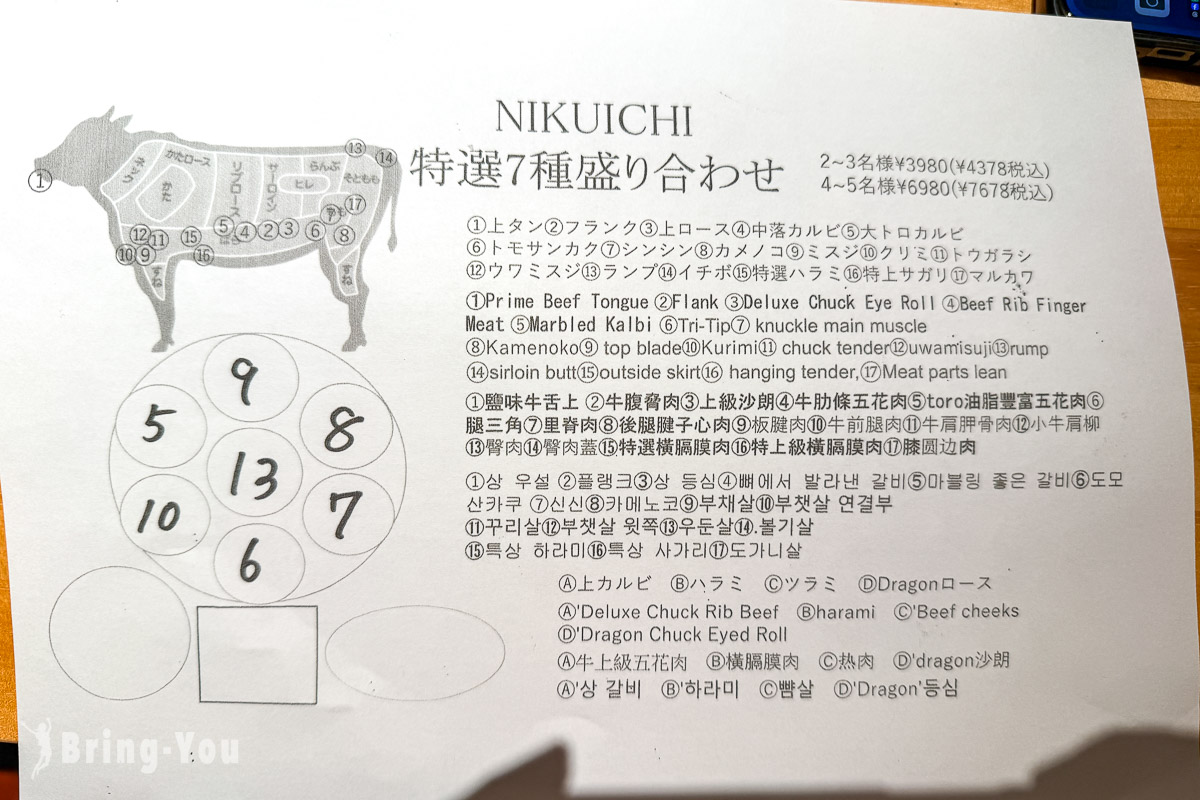 NIKUICHI
特選7種盛り合わせ
2~3名様¥3980(¥4378税込)
4~5名様¥6980(¥7678税込)
①上タン②フランク③上ロース④中落カルビ⑤大トロカルビ
⑥トモサンカク⑦シンシン⑧カメノコ⑨ミスジ⑩クリミ⑪トウガラシ
⑫ウワミスジ⑬ランプ⑭イチボ⑮特選ハラミ⑯特上サガリ⑰マルカワ
①Prime Beef Tongue ②Flank ③Deluxe Chuck Eye Roll ④Beef Rib Finger
Meat ⑤Marbled Kalbi ⑥Tri-Tip⑦ knuckle main muscle
⑧Kamenoko⑨ top blade⑩Kurimi⑪ chuck tender⑫uwamisuji⑬rump
⑭sirloin butt⑮outside skirt⑯ hanging tender,⑰Meat parts lean
①鹽味牛舌上 ②牛腹脅肉③上級沙朗④牛肋條五花肉⑤toro油脂豐富五花肉⑥
腿三角⑦里脊肉⑧後腿腱子心肉⑨板腱肉⑩牛前腿肉⑪牛肩胛骨肉⑫小牛肩柳
⑬臀肉⑭臀肉蓋⑮特選橫膈膜肉⑯特上級橫膈膜肉⑰膝圆边肉
①상 우설 ②플랭크③상 등심④뼈에서 발라낸 갈비⑤마블링 좋은 갈비⑥도모
산카쿠 ⑦신신⑧카메노코⑨부채살⑩부챗살 연결부
⑪꾸리살⑫부챗살 윗쪽⑬우둔살⑭.볼기살
⑮특상 하라미⑯특상 사가리⑰도가니살
Ⓐ上カルビ Ⓑハラミ Ⓒツラミ ⒹDragonロース
Ⓐ'Deluxe Chuck Rib Beef Ⓑharami Ⓒ'Beef cheeks
Ⓓ'Dragon Chuck Eyed Roll
Ⓐ牛上級五花肉 Ⓑ橫膈膜肉 Ⓒ热肉 Ⓓ'dragon沙朗
Ⓐ'상 갈비 Ⓑ'하라미 Ⓒ뺨살 Ⓓ'Dragon'등심
①
ネック
かたロース
かた
リブロース
サーロイン
ヒレ
らんぷ
そともも
すね
すね
⑬
⑭
⑰
⑦
⑫
⑪
⑮
⑤
④
②
③
⑥
⑧
⑩
⑨
⑯
9
5
8
13
10
7
6
Bring-You